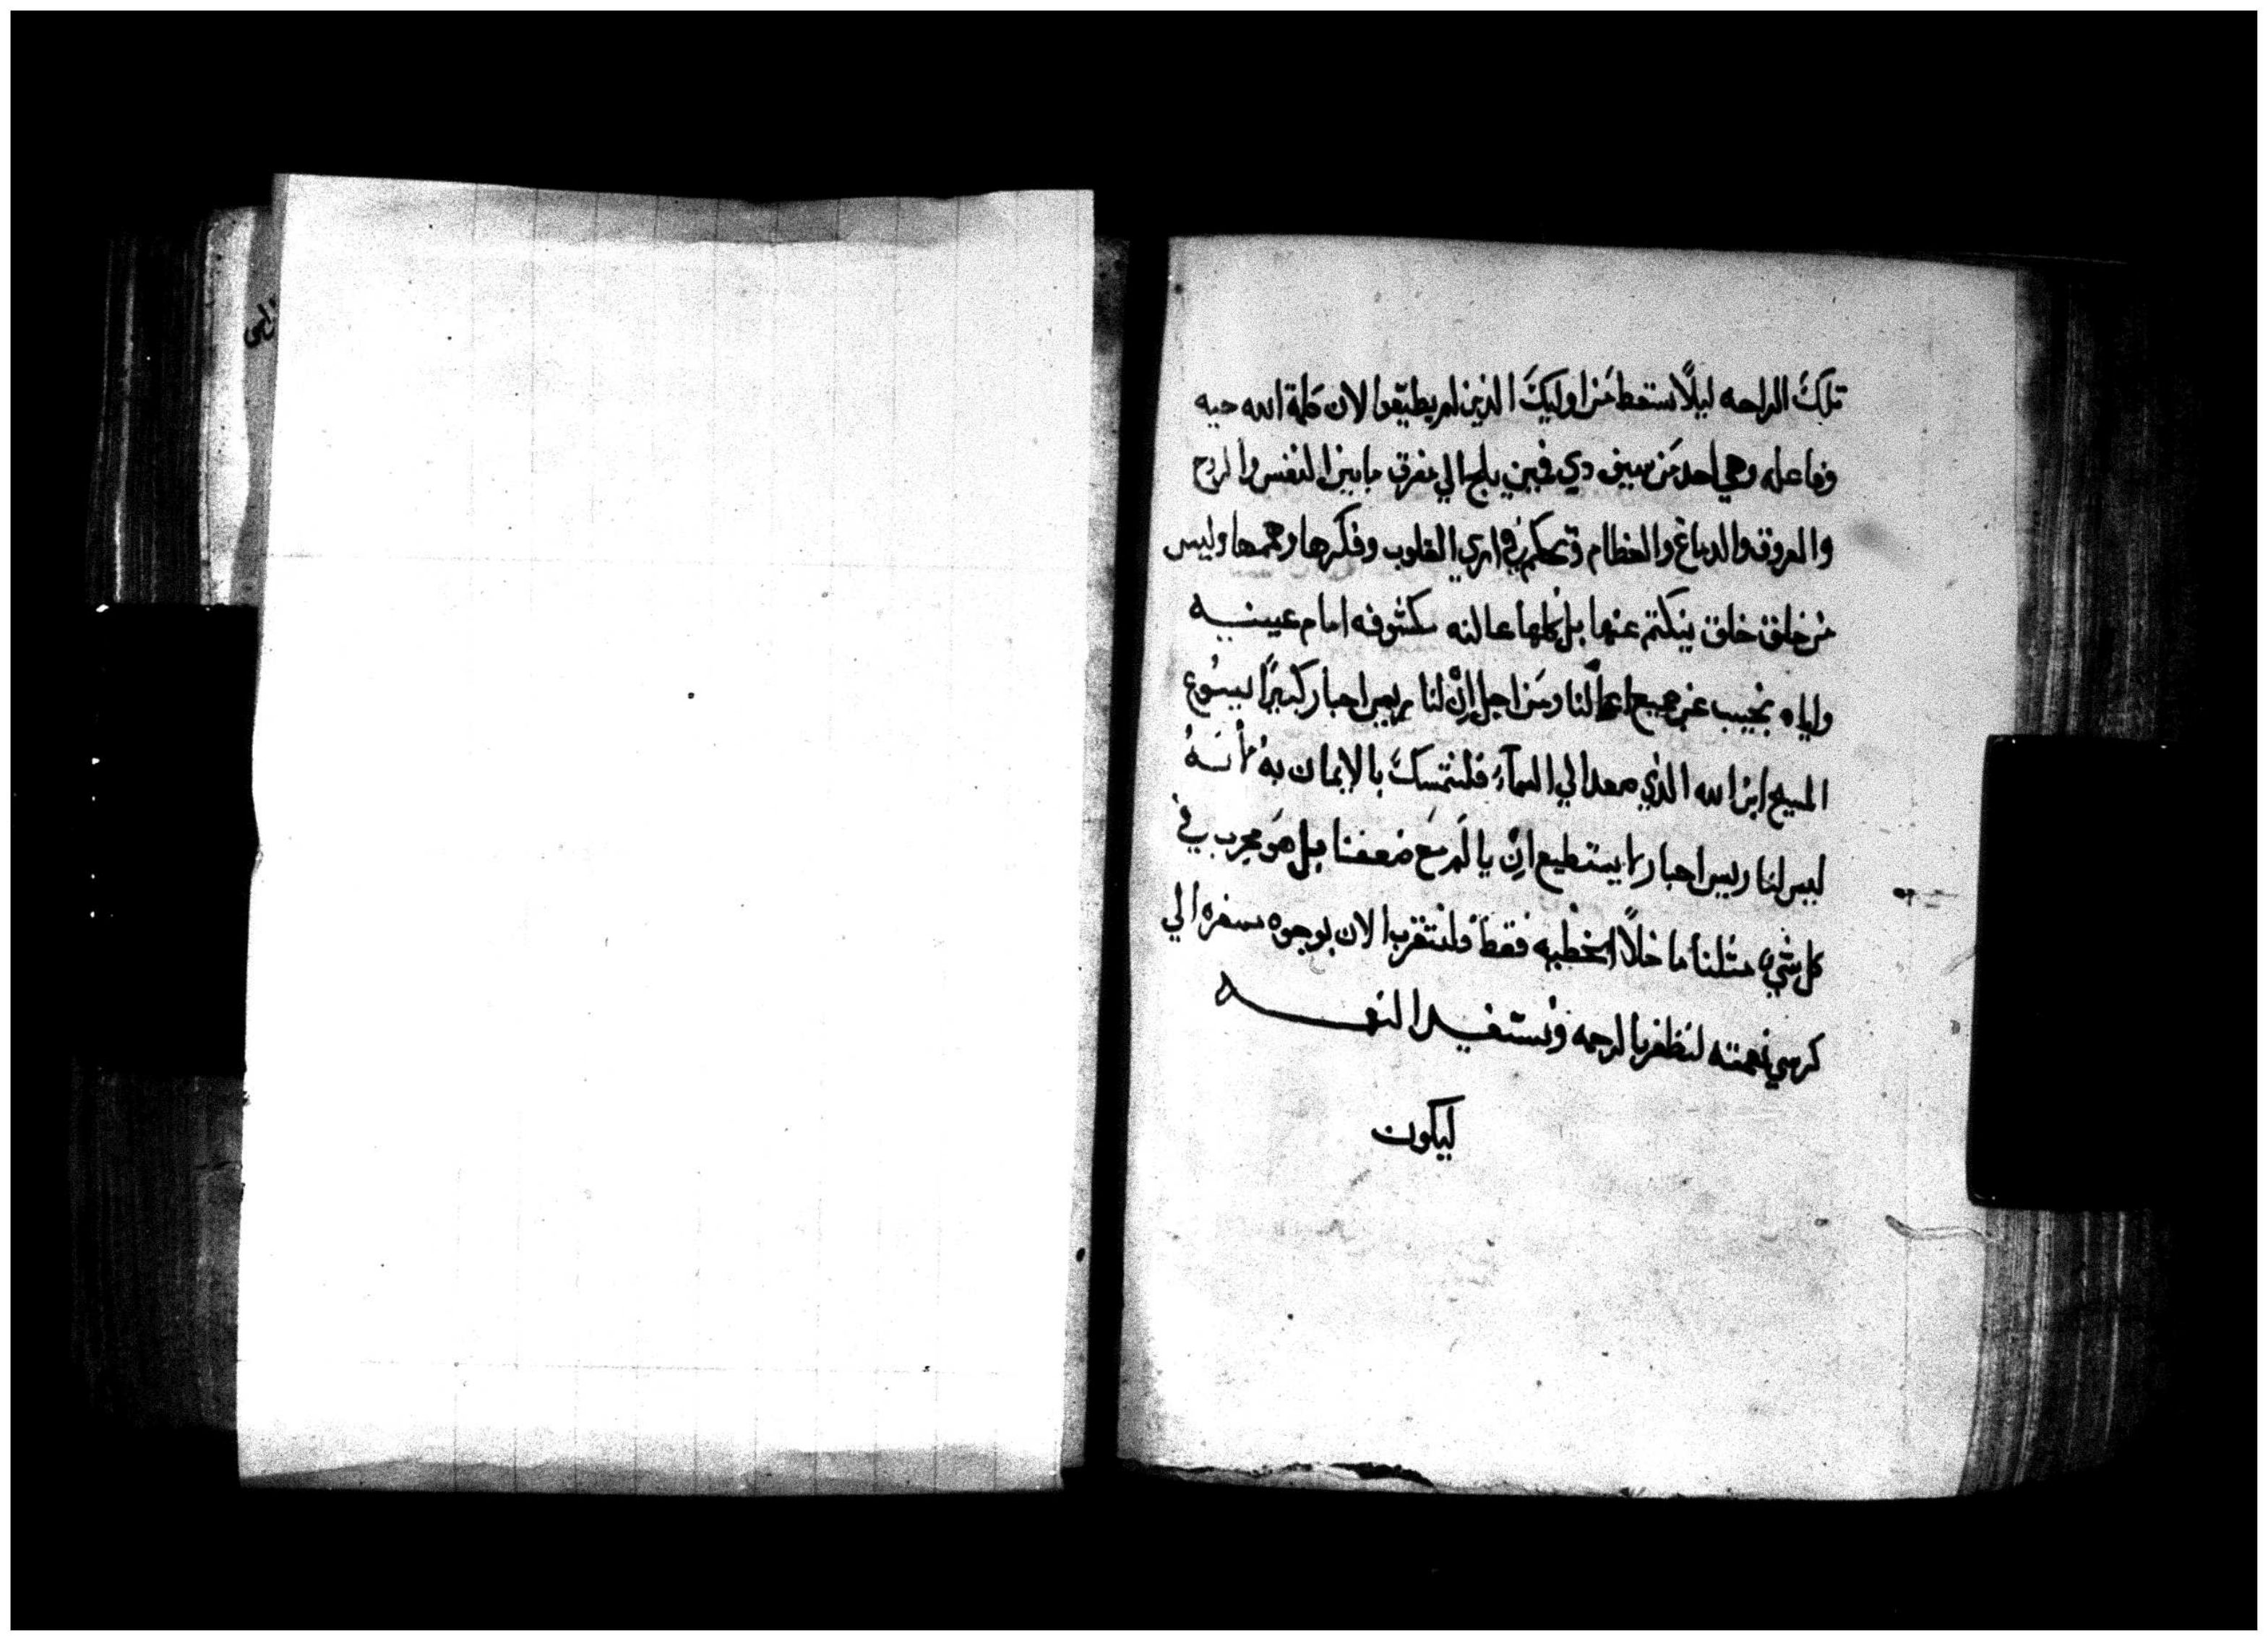 تلكَ الراحه ليلًا نسخط مَن اوليكَ الذين لم يطيقوا لان كلمة الله حيه
وفاعله وهي احد مَن سيف دي فمين يلج الي مفرق ما بين النفس والروح
والعروق والدماغ والعظام وتحكم في اري القلوب وفكرها وهمها وليس
من خلق خلق ينكتم عنها بل كلها عالنه مكشوفه امام عيينيه
واياه نجيب عن جميع اعمالنا ومَن اجل اِنْ لنا رييس احبار كبيرًا يسُوع
المسيح ابن الله الذي صعد الي السمآء فلنتمسكَ بالايمان به لأنهُ
ليس لنا رييس احبار لا يستطيع اِنْ يالَم معَ ضعفنا بل هوَ مجرب في
كل شيء مثلنا ما خلًا الخطيه فقط ولنتقرب الان بوجوه سفره الي
كرسي نعمته لنظفر بالرحمه ونستفيد النعمه
ليكون